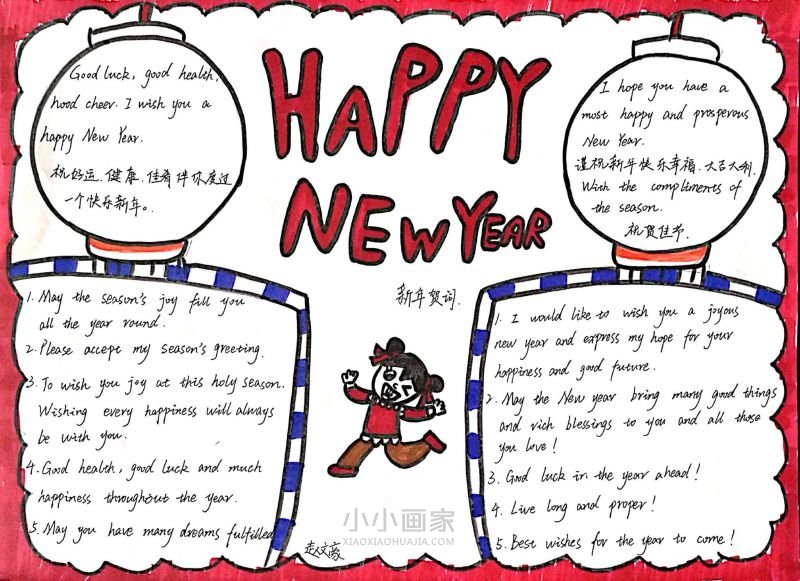 Good luck, good health,
hood cheer. I wish you a
happy New Year.
祝好运、健康、佳肴伴你度过
一个快乐新年。
HAPPY
NEW YEAR
新年贺词.
I hope you have a
most happy and prosperous
New Year.
谨祝新年快乐幸福、大吉大利.
With the compliments of
the season.
祝贺佳节.
1. May the season's joy fill you
all the year round.
2. Please accept my season's greeting.
3. To wish you joy at this holy season.
Wishing every happiness will always
be with you.
4. Good health, good luck and much
happiness throughout the year.
5. May you have many dreams fulfilled
1. I would like to wish you a joyous
new year and express my hope for your
happiness and good future.
2. May the New year bring many good things
and rich blessings to you and all those
you love!
3. Good luck in the year ahead!
4. Live long and proper!
5. Best wishes for the year to come!
小小画家
XIAOXIAOHUAJIA.COM